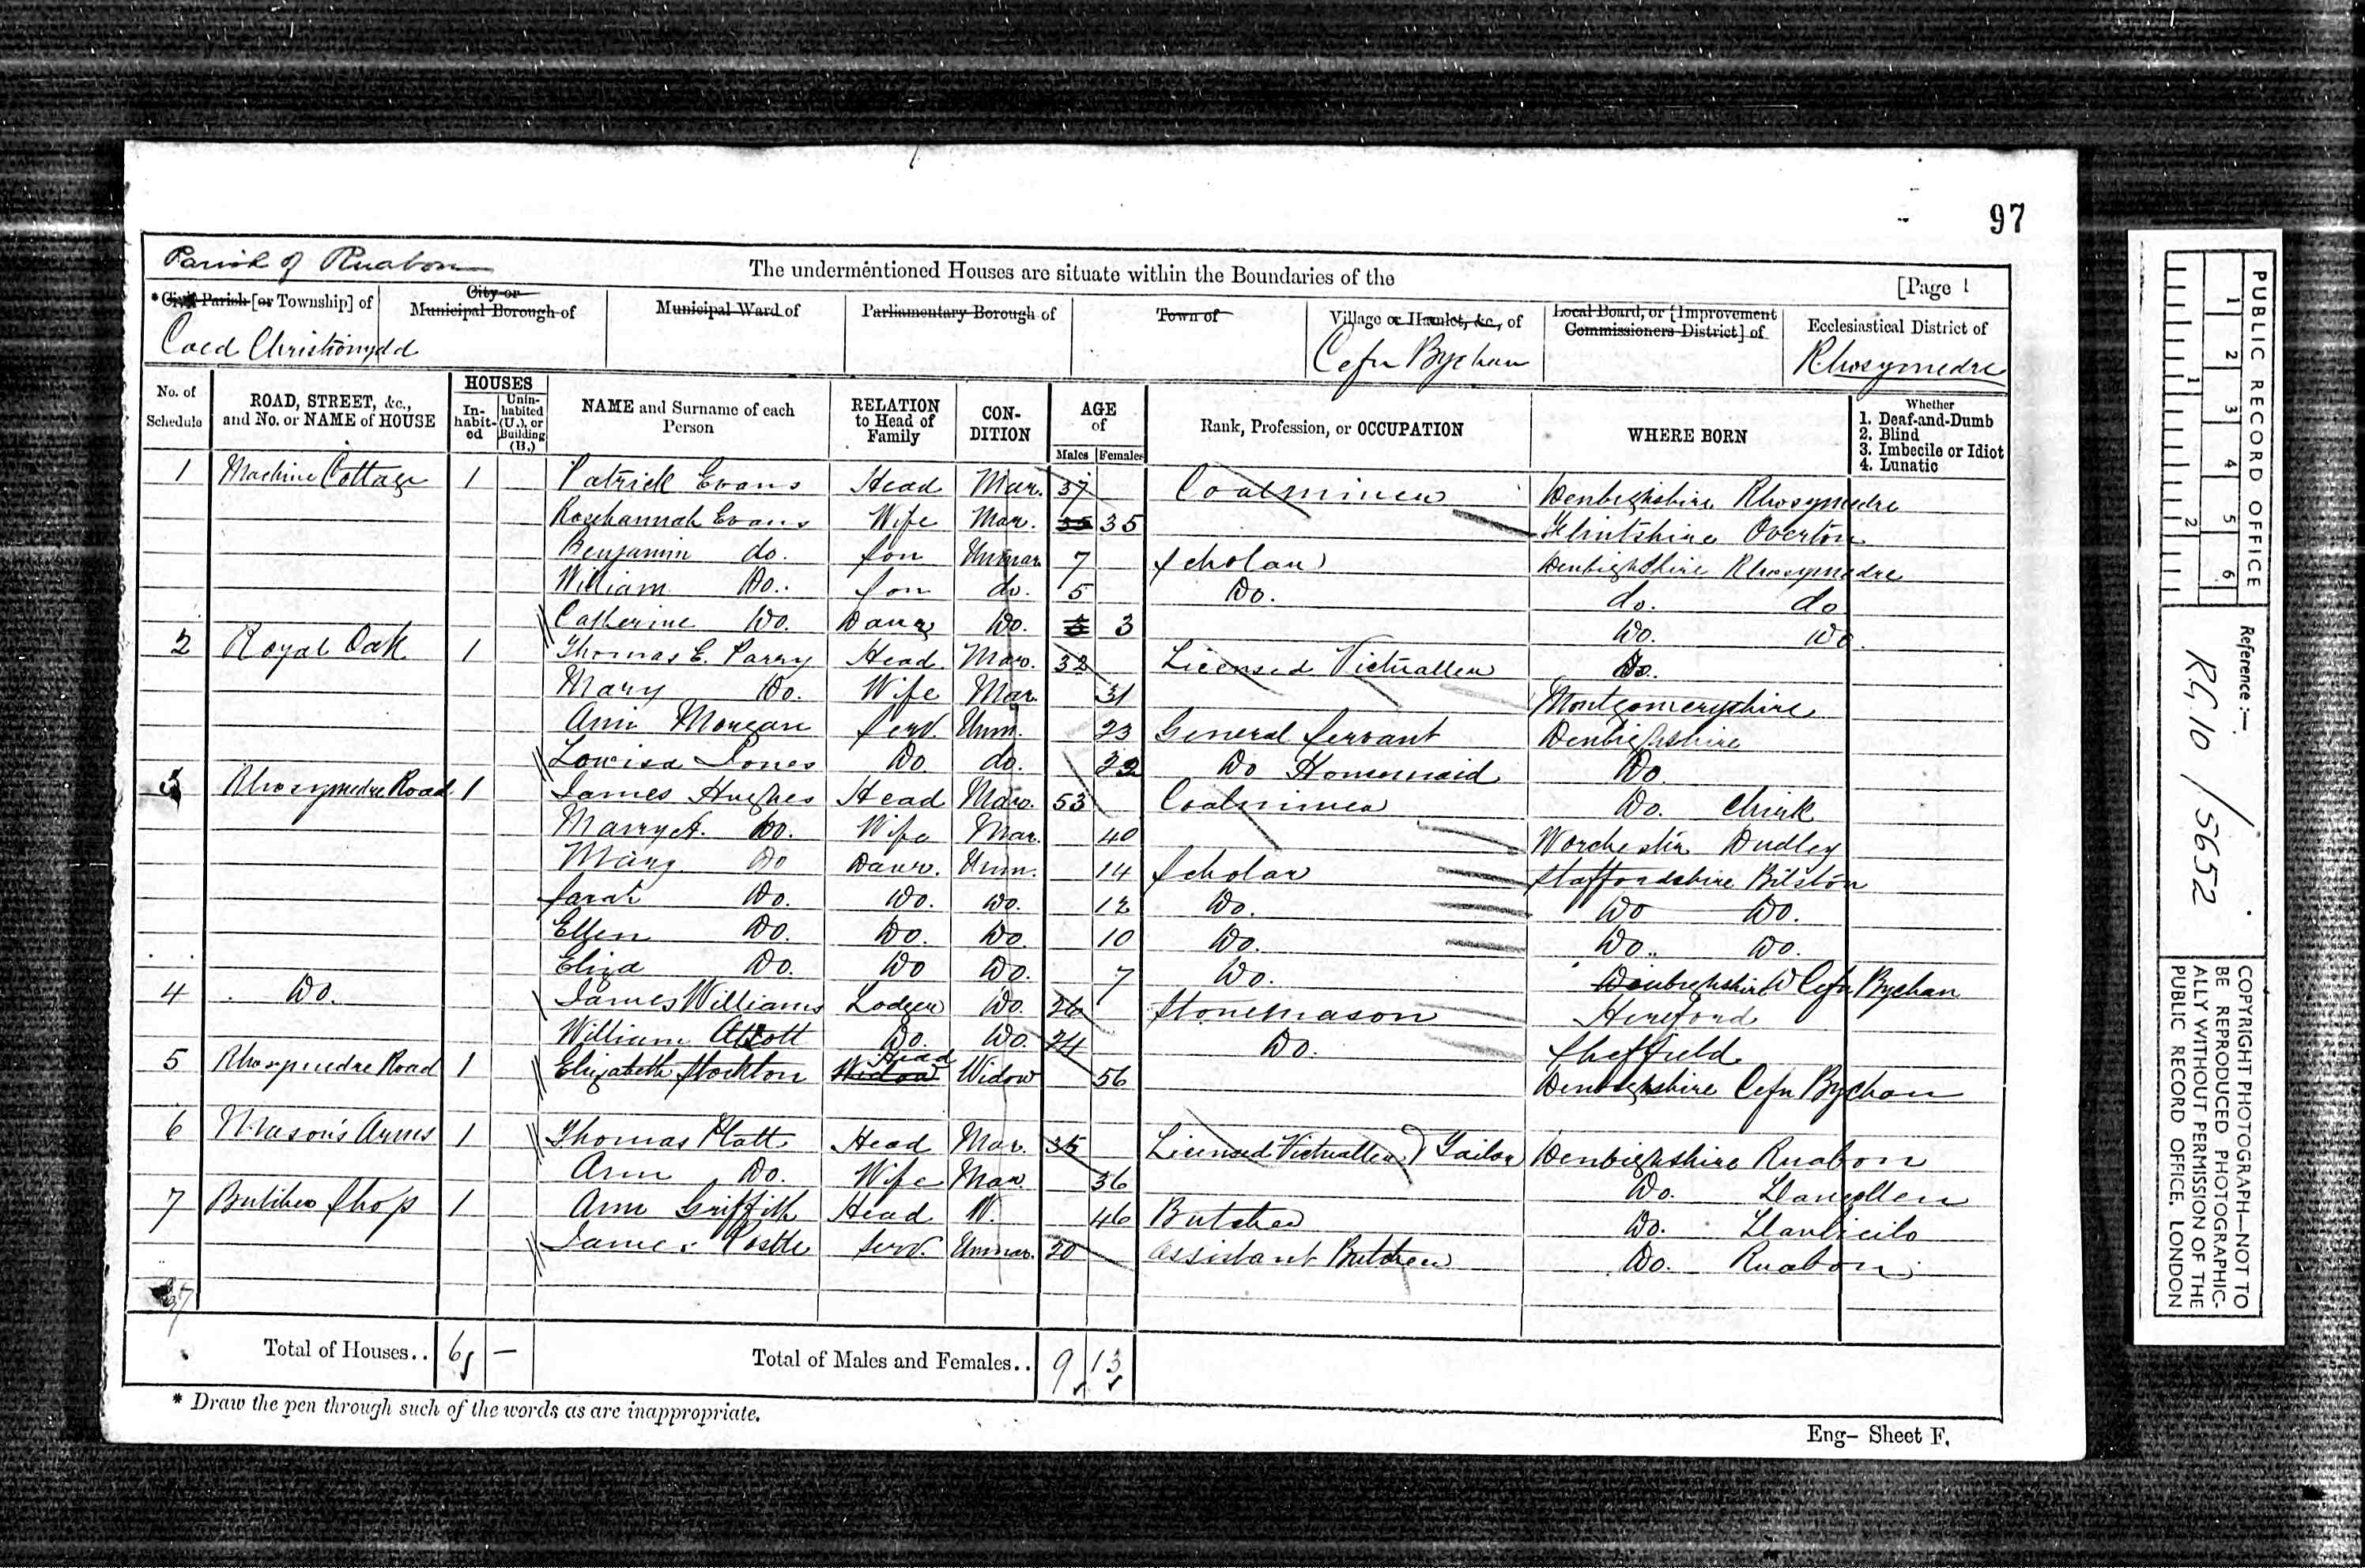 97
Parish of Ruabon
The undermentioned Houses are situate within the Boundaries of the
[Page 1
*Civil Parish [or Township] of
City or Municipal Borough of
Municipal Ward of
Parliamentary Borough of
Town of
Village or Hamlet, &c., of
Local Board, or [Improvement Commissioners District] of
Ecclesiastical District of
Coed Christionydd
Cefn Bychan
Rhosymedre
No. of Schedule
ROAD, STREET, &c., and No. or NAME of HOUSE
HOUSES
In-habit-ed
Unin-habited (U.), or Building (B.)
NAME and Surname of each Person
RELATION to Head of Family
CON-DITION
AGE of
Males Females
Rank, Profession, or OCCUPATION
WHERE BORN
Whether
1. Deaf-and-Dumb
2. Blind
3. Imbecile or Idiot
4. Lunatic
1 Machine Cottage 1 Patrick Evans Head Mar. 37 Coalminer Denbighshire Rhosymedre
Rosehannah Evans Wife Mar. 35 Flintshire Overton
Benjamin do. Son Unmar. 7 Scholar Denbighshire Rhosymedre
William Do. Son do. 5 Do. do. do
Catherine Do. Daur Do. 3 Do. Do.
2 Royal Oak 1 Thomas E. Parry Head Mar. 32 Licensed Victualler Do.
Mary Do. Wife Mar. 31 Montgomeryshire
Ann Morgan Serv. Unm. 23 General Servant Denbighshire
Lowisa Jones Do do. 22 Do Housemaid Do
3 Rhosymedre Road 1 James Hughes Head Mar. 53 Coalminer Do. Chirk
Marry A. Do. Wife Mar. 40 Worchester Dudley
Mary Do Daur. Unm. 14 Scholar Staffordshire Bilston
Sarah Do. Do. Do. 12 Do. Do Do.
Ellen Do. Do. Do. 10 Do. Do.. Do.
Eliza Do. Do Do. 7 Do. Denbighshire Cefn Bychan
4 Do. James Williams Lodger Do. 26 Stonemason Hereford
William Do. Do. 24 Do. Sheffield
5 Rhosymedre Road 1 Elizabeth Stockton Widow Head Widow 56 Denbighshire Cefn Bychan
6 Mason's Arms 1 Thomas Platt Head Mar. 35 Licensed Victualler) Tailor Denbighshire Ruabon
Ann Do. Wife Mar. 36 Do. Llangollen
7 Butcher Shop 1 Ann Griffith Head W. 46 Butcher Do.
James Serv. Unmar. 20 Assistant Butcher Do. Ruabon
Total of Houses.. 6 —
Total of Males and Females.. 9 13
* Draw the pen through such of the words as are inappropriate.
Eng- Sheet F.
PUBLIC RECORD OFFICE
1 2 3 4 5 6
1 2
Reference:—
RG 10 / 5652
COPYRIGHT PHOTOGRAPH—NOT TO
BE REPRODUCED PHOTOGRAPHIC-
ALLY WITHOUT PERMISSION OF THE
PUBLIC RECORD OFFICE, LONDON